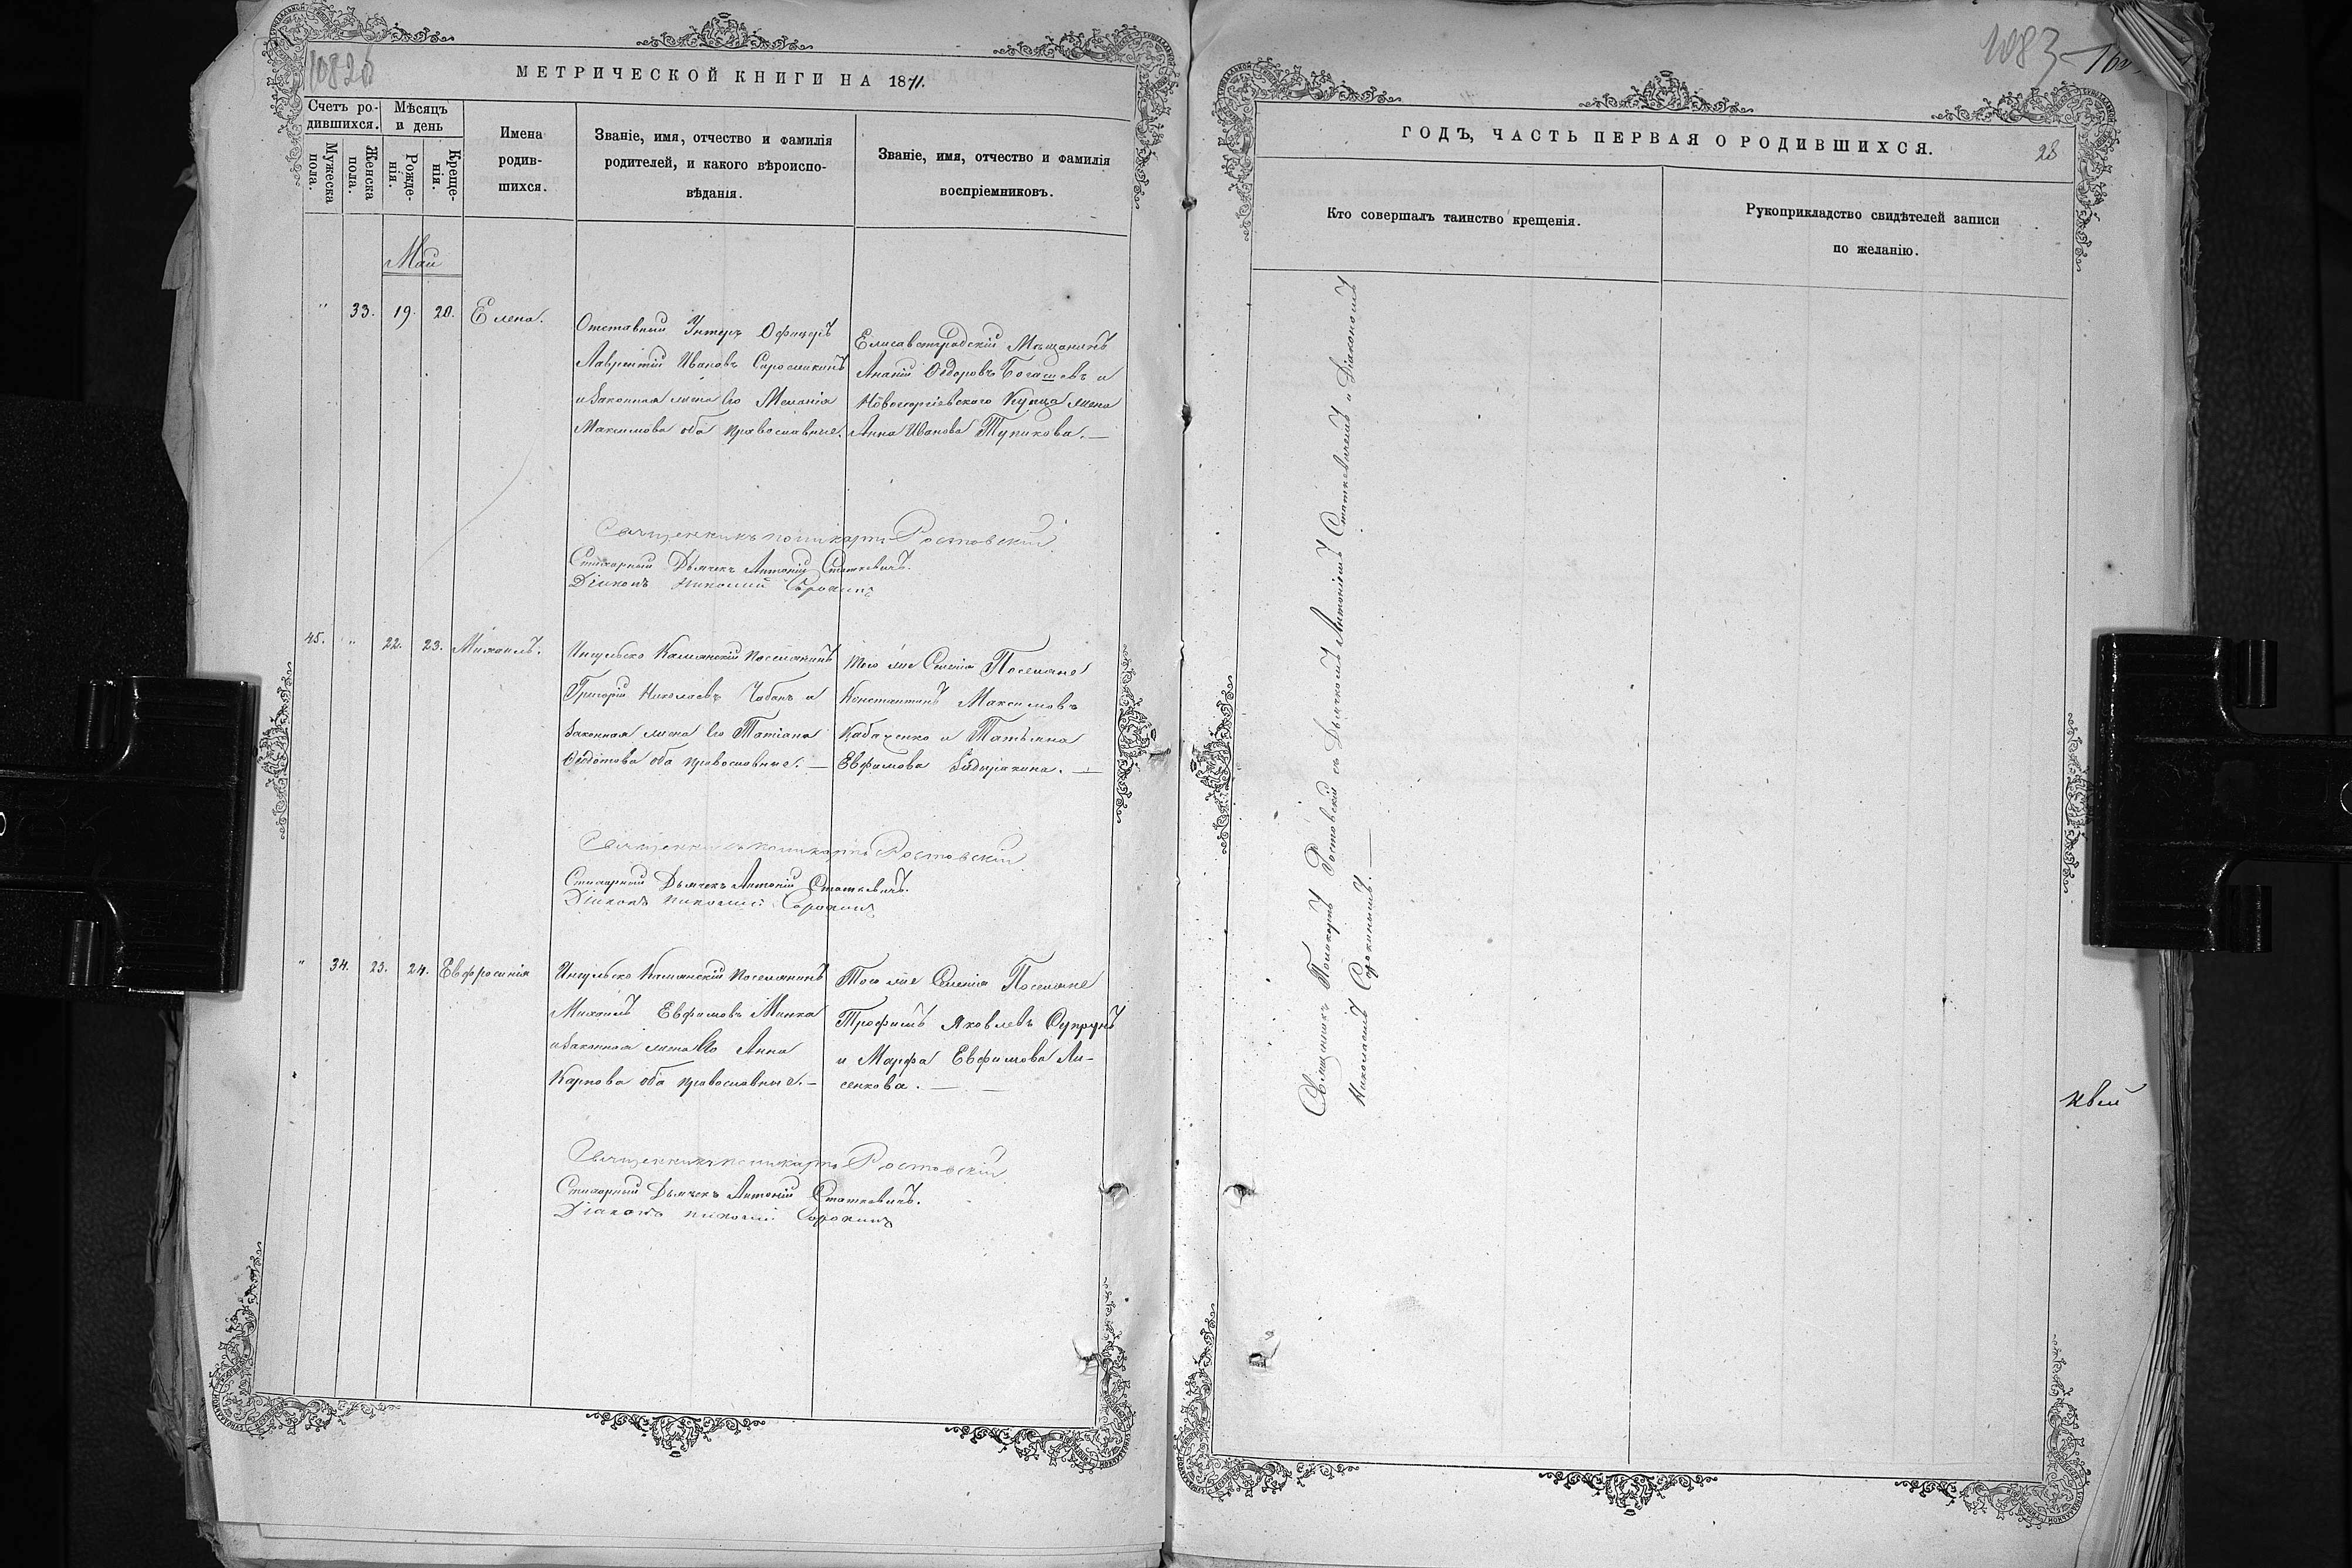 1082б
МЕТРИЧЕСКОЙ КНИГИ НА 1871.
Счетъ ро-
дившихся.
Мѣсяцъ
и день
Мужеска
пола.
Женска
пола.
Рожде-
нія.
Креще-
нія.
Имена
родив-
шихся.
Званіе, имя, отчество и фамилія
родителей, и какого вѣроиспо-
вѣданія.
Званіе, имя, отчество и фамилія
воспріемниковъ.
Маи
" 33. 19. 20. Елена.
Отставный Унтеръ Офицеръ
Лаврентій Ивановъ
и Законная жена его Меланія
Максимова оба православные.
Елисаветградскій Мѣщанинъ
Ананій Ѳедоровъ Богашовъ и
Новогеоргіевскаго Купца жена
Анна Иванова Тупикова.—
Священникъ Поликарпъ Ростовскій
Стихарный Дьячекъ Антоній Статкевичъ.
Діаконъ Николай Сорокинъ
45. " 22. 23. Михаилъ.
Ингульско Камянскій Поселянинъ
Григорій Николаевъ Чабанъ и
Законная жена его Татіана
Ѳедотова оба православные.—
Того же Селенія Поселяне
Константинъ Максимовъ
Кабаченко и Татьяна
Евфимова.—
Священникъ Поликарпъ Ростовскій
Стихарный Дьячекъ Антоній Статкевичъ.
Діаконъ Николай Сорокинъ
" 34. 23. 24. Евфросинія
Ингульско Камянскій Поселянинъ
Михаилъ Евфимовъ Минка
и Законная жена Его Анна
Карпова оба православные.—
Того же Селенія Поселяне
Трофимъ Яковлевъ Супрунъ
и Марфа Евфимова Ли-
сенкова.—
Священникъ Поликарпъ Ростовскій
Стихарный Дьячекъ Антоній Статкевичъ.
Діаконъ Николай Сорокинъ
1083
ГОДЪ, ЧАСТЬ ПЕРВАЯ О РОДИВШИХСЯ.
28
Кто совершалъ таинство крещенія.
Рукоприкладство свидѣтелей записи
по желанію.
Священникъ Поликарпъ Ростовскій съ Дьячкомъ Антоніемъ Статкевичемъ и Діакономъ
Николаемъ Сорокинымъ.—